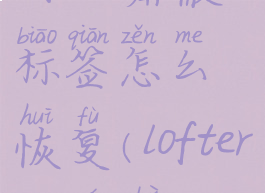 biāo qiān zěn me
标签怎么
huī fù
恢复(lofter